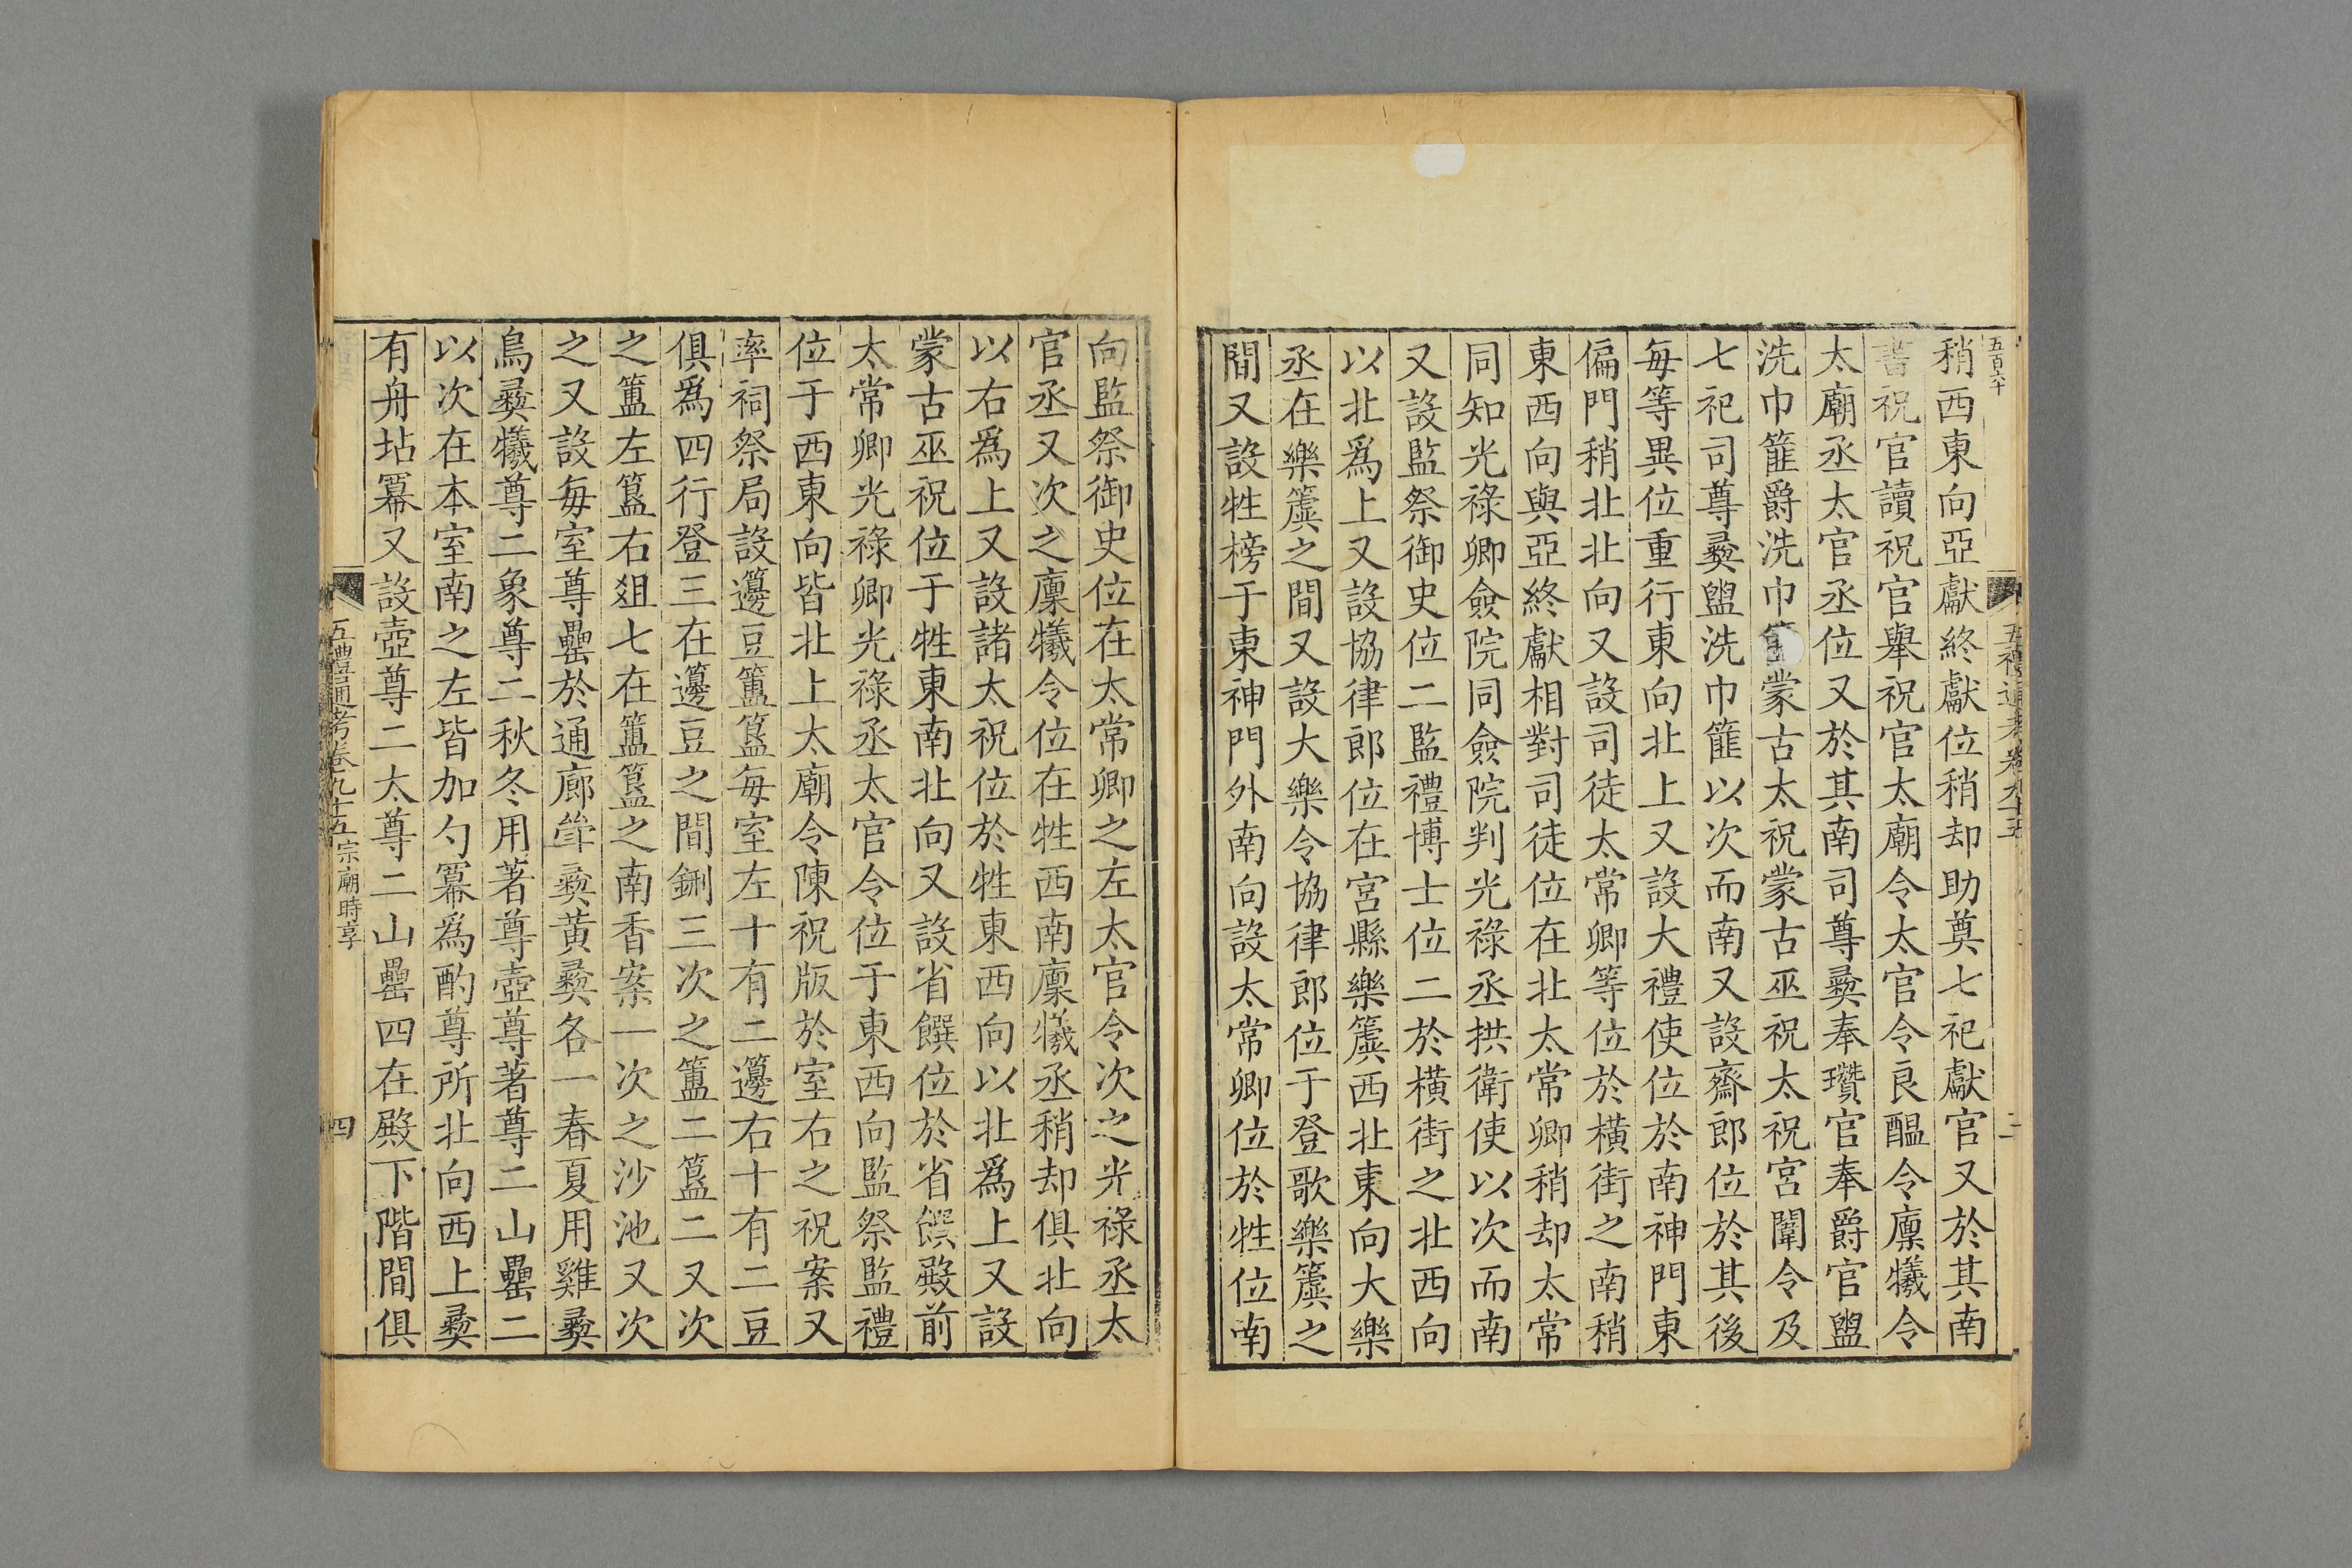 五百六十
五禮通考卷九十五
稍西東向亞獻終獻位稍却助奠七祀獻官又於其南
書祝官讀祝官舉祝官太廟令太官令良醞令廩犧令
太廟丞太官丞位又於其南司尊彝奉瓚官奉爵官盥
洗巾篚爵洗巾蒙古太祝蒙古巫祝太祝宮闈令及
七祀司尊彝盥洗巾篚以次而南又設齋郎位於其後
每等異位重行東向北上又設大禮使位於南神門東
偏門稍北北向又設司徒太常卿等位於橫街之南稍
東西向與亞終獻相對司徒位在北太常卿稍却太常
同知光祿卿僉院同僉院判光祿丞拱衛使以次而南
又設監祭御史位二監禮博士位二於橫街之北西向
以北爲上又設協律郎位在宮縣樂簴西北東向大樂
丞在樂簴之間又設大樂令協律郎位于登歌樂簴之
間又設牲榜于東神門外南向設太常卿位於牲位南
向監祭御史位在太常卿之左太官令次之光祿丞太
官丞又次之廩犧令位在牲西南廩犧丞稍却俱北向
以右爲上又設諸太祝位於牲東西向以北爲上又設
蒙古巫祝位于牲東南北向又設省饌位於省饌殿前
太常卿光祿卿光祿丞太官令位于東西向監祭監禮
位于西東向皆北上太廟令陳祝版於室右之祝案又
率祠祭局設籩豆簠簋每室左十有二籩右十有二豆
俱爲四行登三在籩豆之間鉶三次之簠二簋二又次
之簠左簋右俎七在簠簋之南香案一次之沙池又次
之又設每室尊罍於通廊斝彝黃彝各一春夏用雞彝
鳥彝犧尊二象尊二秋冬用著尊壺尊著尊二山罍二
以次在本室南之左皆加勺冪爲酌尊所北向西上彝
有舟坫冪又設壺尊二太尊二山罍四在殿下階間俱
五禮通考卷九十五宗廟時享
四